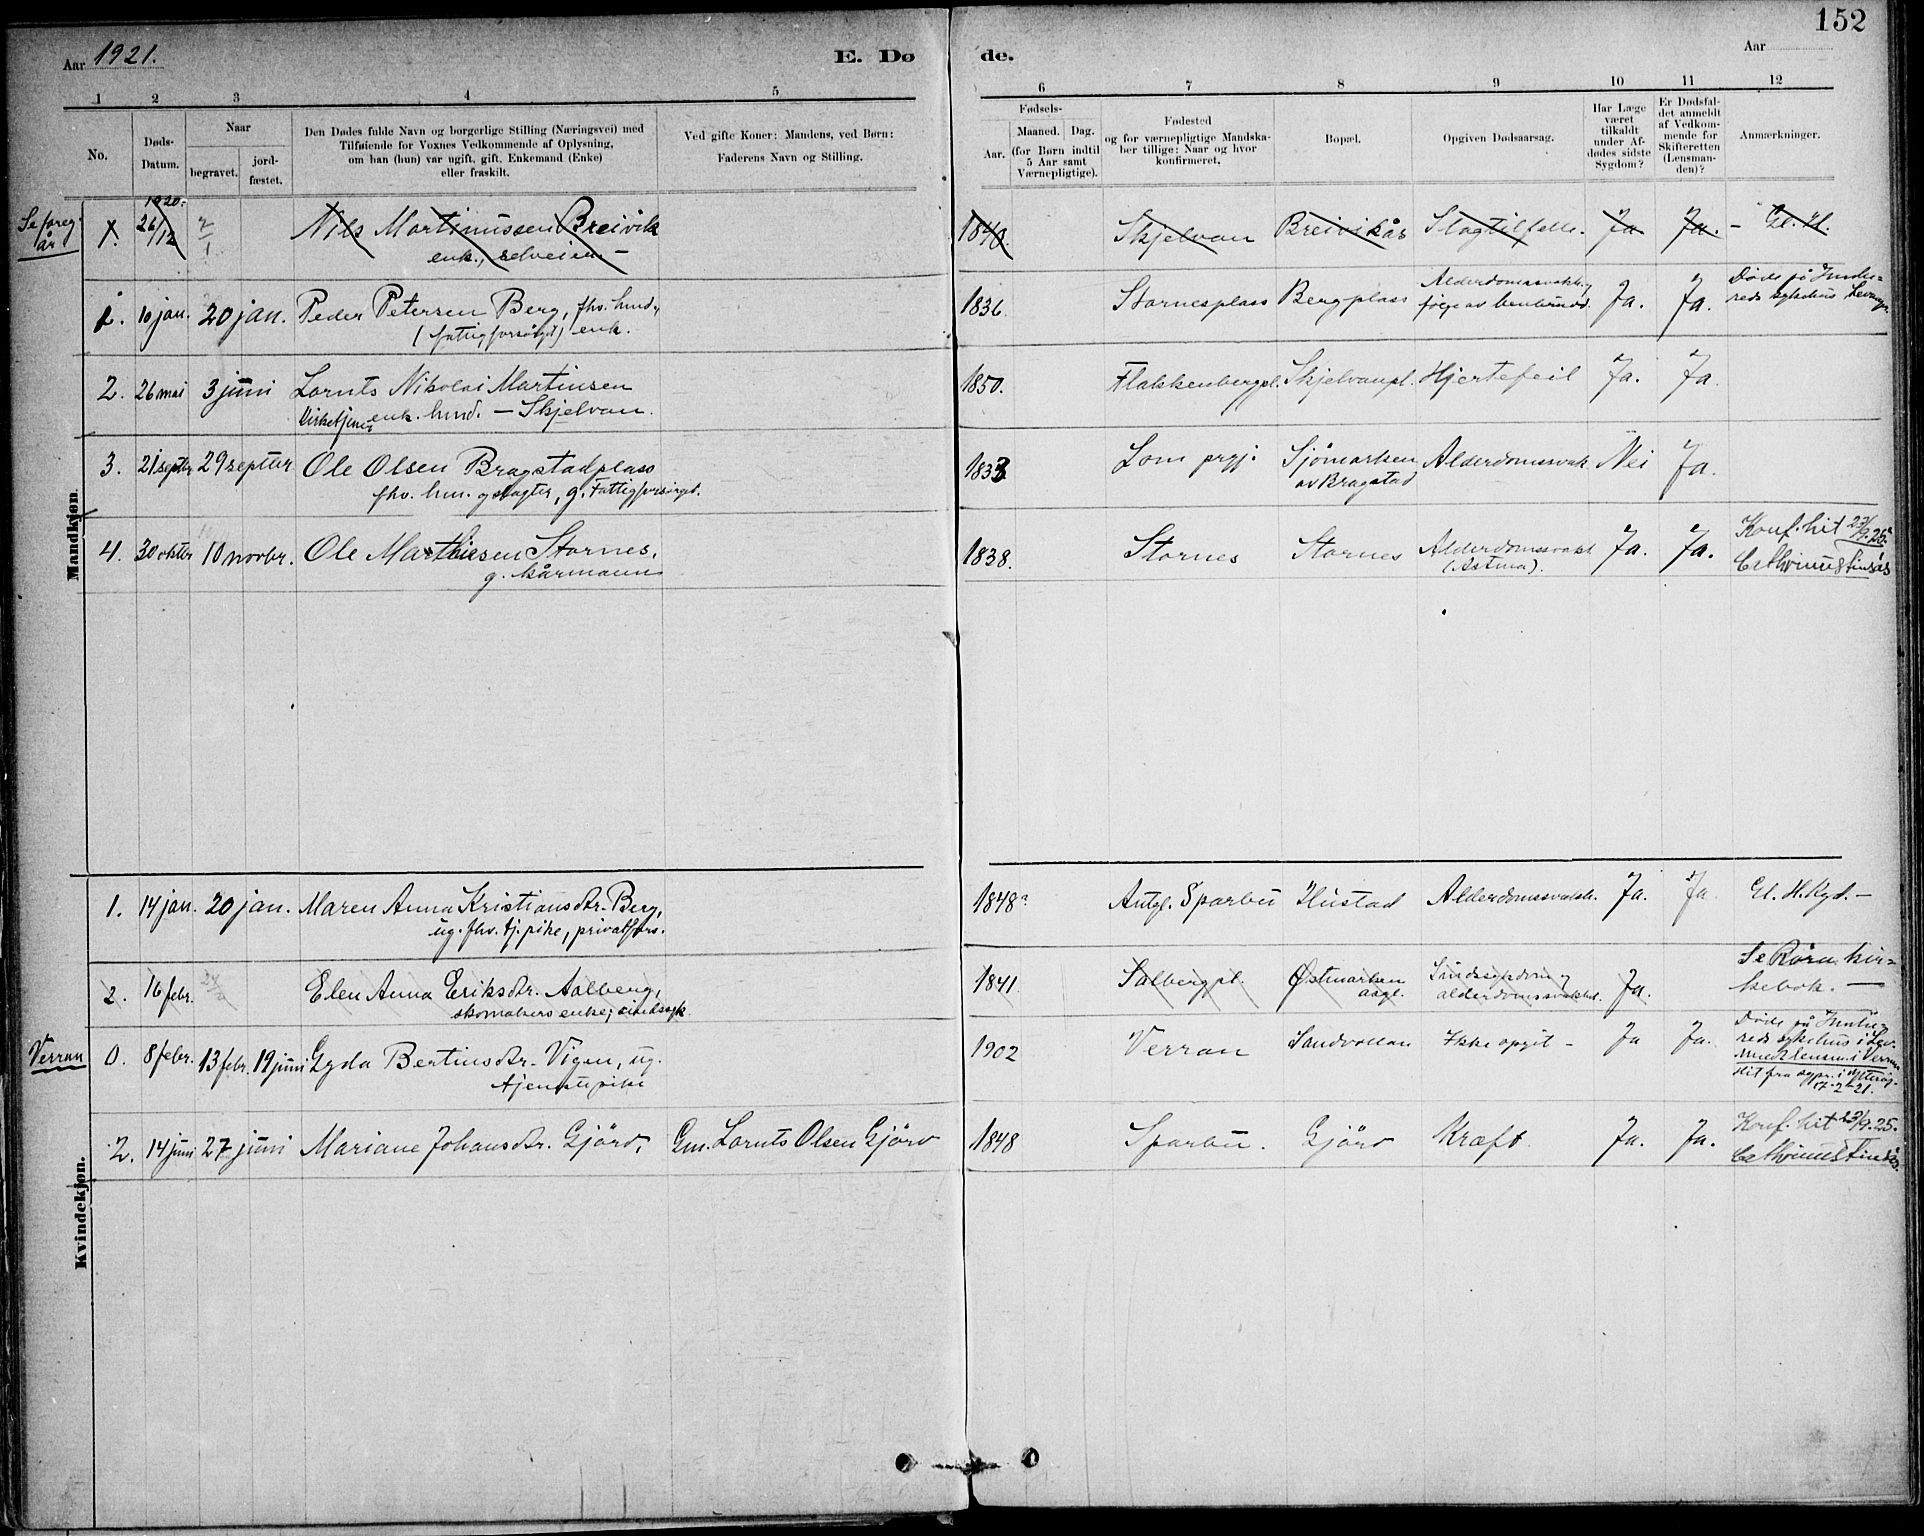 152
Aar 1921.
E. Dø
de.
Aar
1 2 3 4 5
6 7 8 9 10 11 12
No.
Døds-
Datum.
Naar
begravet.
jord-
fæstet.
Den Dødes fulde Navn og borgerlige Stilling (Næringsvei) med
Tilføiende for Voxnes Vedkommende af Oplysning,
om han (hun) var ugift, gift, Enkemand (Enke)
eller fraskilt.
Ved gifte Koner: Mandens, ved Børn:
Faderens Navn og Stilling.
Fødsels-
Aar.
Maaned. Dag.
(for Børn indtil
5 Aar samt
Værnepligtige).
Fødested
og for værnepligtige Mandska-
ber tillige: Naar og hvor
konfirmeret.
Bopæl.
Opgiven Dødsaarsag.
Har Læge
været
tilkaldt
under Af-
dødes sidste
Sygdom?
Er Dødsfal-
det anmeldt
af Vedkom-
mende for
Skifteretten
(Lensman-
den)?
Anmærkninger.
Se foreg.
år
1. 1920: 26/12 2/1 Nils Martinussen Breivik
enk., selveier –
1840. Skjelvan Breivikås Slagtilfelle. Ja Ja. – Gl. H.
1. 10 jan. 20 jan. Peder Petersen Berg, fhv. husd.,
(fattigforsørget) enk.
1836 Stornesplass Bergplass Alderdomssvakh.
følge av benbrudd. Ja. Ja. Døde på Innhe-
reds sykehus Levanger
2. 26 mai 3 juni Lornts Nikolai Martinsen
Kirketjener enk. husd. – Skjelvan.
1850. Flakkenbergpl. Skjelvanpl. Hjertefeil Ja. Ja.
3. 21 septbr 29 septbr. Ole Olsen Bragstadplass
fhv. hus. og slagter, g. Fattigforsørget.
1833 Lom prgj. Sjömarken
av Bragstad Alderdomssvak. Nei Ja.
Mandkjøn.
4. 30 oktbr 10 novbr. Ole Mathiesen Stornes,
g. kårmann
1838. Stornes Stornes Alderdomssvakh.
(Astma). Ja. Ja. Konf. hit 23/9.25.
1. 14 jan. 20 jan. Maren Anna Kristiansdtr. Berg,
ug. fhv. tj. pike, privatfors.
1848 Autgl. Sparbu Hustad Alderdomssvakh. Ja. Ja Gl. H. Kgd. –
2. 16 febr. Elen Anna Eriksdtr. Aalberg,
skomakers enke; sindssyk
1841 Salbergpl. Østmarken
asyl. Sindssygdom og
alderdomssvakhet. Ja. Se Røra kir-
kebok. –
Verran
0. 8 febr. 13 febr. 19 juni Lyda Bertinsdtr. Vigen, ug.
tjenestepike
1902 Verran Sandvollan Ikke opgit – Ja Ja. Døde på Innhe-
reds sykehus i Lev.
Meldt lensm. i Verran
Hit fra sogpr. i Ytterøy
17-2-21.
2. 14 juni 27 juni Mariane Johansdtr. Gjörv, Gm. Lornts Olsen Gjörv
1848 Sparbu. Gjörv Kræft Ja. Ja. Konf. hit 23/9.25.
Kvindekjøn.